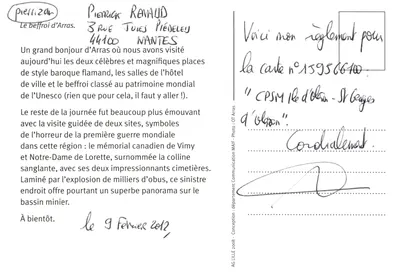 Le beffroi d'Arras.
Pierrick RENAUD
3 RUE
44100 NANTES
Un grand bonjour d'Arras où nous avons visité
aujourd'hui les deux célèbres et magnifiques places
de style baroque flamand, les salles de l'hôtel
de ville et le beffroi classé au patrimoine mondial
de l'Unesco (rien que pour cela, il faut y aller !).
Le reste de la journée fut beaucoup plus émouvant
avec la visite guidée de deux sites, symboles
de l'horreur de la première guerre mondiale
dans cette région : le mémorial canadien de Vimy
et Notre-Dame de Lorette, surnommée la colline
sanglante, avec ses deux impressionnants cimetières.
Laminé par l'explosion de milliers d'obus, ce sinistre
endroit offre pourtant un superbe panorama sur le
bassin minier.
À bientôt.
le 9 Février 2012
Voici mon règlement pour
la carte n°
" CPSM Ile d'Oléron - St Georges
d'Oléron".
Cordialement.